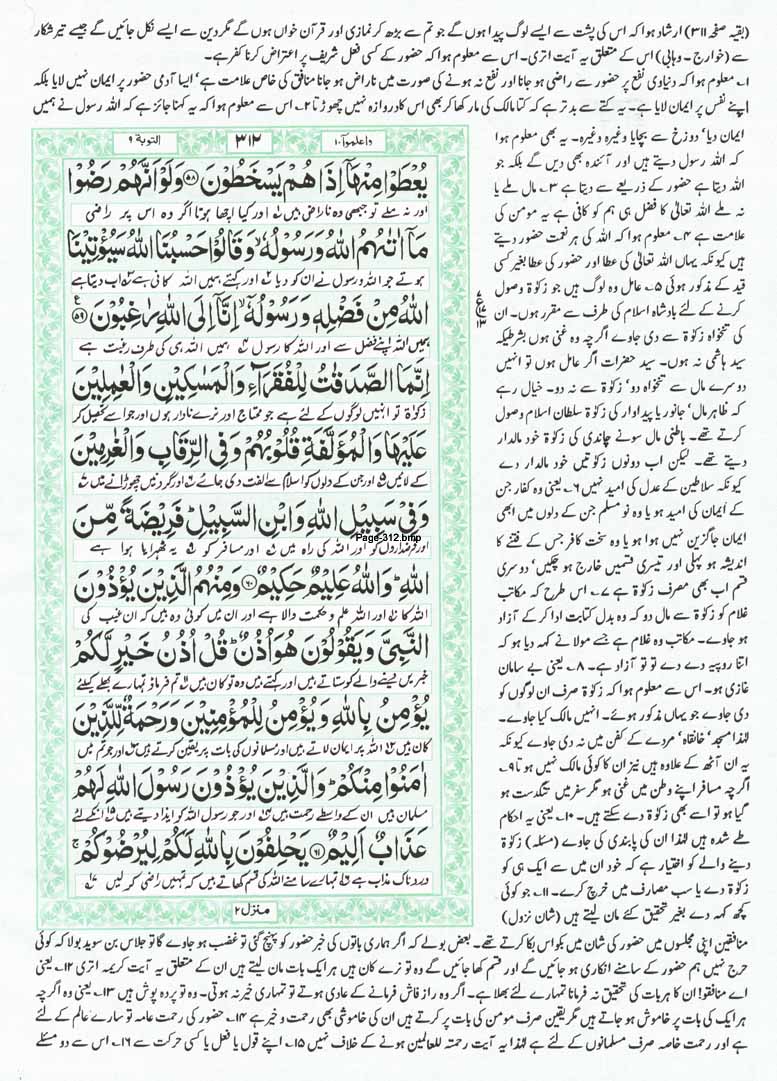 (بقیہ صفحہ ۳۱۱) ارشاد ہوا کہ اس کی پشت سے ایسے لوگ پیدا ہوں گے جو تم سے بڑھ کر نمازی اور قرآن خواں ہوں گے مگر دین سے ایسے نکل جائیں گے جیسے تیر شکار
سے (خوارج۔ وہابی) اس کے متعلق یہ آیت اتری۔ اس سے معلوم ہوا کہ حضور کے کسی فعل شریف پر اعتراض کرنا کفر ہے۔
۱۔ معلوم ہوا کہ دنیاوی نفع پر حضور سے راضی ہو جانا اور نفع نہ ہونے کی صورت میں ناراض ہو جانا منافق کی خاص علامت ہے' ایسا آدمی حضور پر ایمان نہیں لایا بلکہ
اپنے نفس پر ایمان لایا ہے۔ یہ کتے سے بدتر ہے کہ کتا مالک کی مار کھا کر بھی اس کا دروازہ نہیں چھوڑتا ۲۔ اس سے معلوم ہوا کہ یہ کہنا جائز ہے کہ اللہ رسول نے ہمیں
ایمان دیا' دوزخ سے بچایا وغیرہ وغیرہ۔ یہ بھی معلوم ہوا
کہ اللہ رسول دیتے ہیں اور آئندہ بھی دیں گے بلکہ جو
اللہ دیتا ہے حضور کے ذریعے سے دیتا ہے ۳۔ مال ملے یا
نہ ملے اللہ تعالیٰ کا فضل ہی ہم کو کافی ہے یہ مومن کی
علامت ہے ۴۔ معلوم ہوا کہ اللہ کی ہر نعمت حضور دیتے
ہیں کیونکہ یہاں اللہ تعالیٰ کی عطا اور حضور کی عطا بغیر کسی
قید کے مذکور ہوئی ۵۔ عامل وہ لوگ ہیں جو زکوٰۃ وصول
کرنے کے لئے بادشاہ اسلام کی طرف سے مقرر ہوں۔ ان
کی تنخواہ زکوٰۃ سے دی جاوے اگرچہ وہ غنی ہوں بشرطیکہ
سید ہاشمی نہ ہوں۔ سید حضرات اگر عامل ہوں تو انہیں
دوسرے مال سے تنخواہ دو' زکوٰۃ سے نہ دو۔ خیال رہے
کہ ظاہر مال' جانور یا پیداوار کی زکوٰۃ سلطان اسلام وصول
کرتے تھے۔ باطنی مال سونے چاندی کی زکوٰۃ خود مالدار
دیتے تھے۔ لیکن اب دونوں زکوٰتیں خود مالدار دے
کیونکہ سلاطین کے عدل کی امید نہیں ۶۔ یعنی وہ کفار جن
کے ایمان کی امید ہو یا وہ نو مسلم جن کے دلوں میں ابھی
ایمان جاگزین نہیں ہوا ہو یا وہ سخت کافر جس کے فتنے کا
اندیشہ ہو پہلی اور تیسری قسمیں خارج ہو چکیں' دوسری
قسم اب بھی مصرف زکوٰۃ ہے ۷۔ اس طرح کہ مکاتب
غلام کو زکوٰۃ سے مال دو کہ وہ بدل کتابت ادا کر کے آزاد
ہو جاوے۔ مکاتب وہ غلام ہے جسے مولا نے کہہ دیا ہو کہ
اتنا روپیہ دے دے تو تو آزاد ہے۔ ۸۔ یعنی بے سامان
غازی ہو۔ اس سے معلوم ہوا کہ زکوٰۃ صرف ان لوگوں کو
دی جاوے جو یہاں مذکور ہوئے۔ انہیں مالک کیا جاوے۔
لہٰذا مسجد' خانقاہ' مردے کے کفن میں نہ دی جاوے کیونکہ
یہ ان آٹھ کے علاوہ ہیں نیز ان کا کوئی مالک نہیں ہوتا ۹۔
اگرچہ مسافر اپنے وطن میں غنی ہو مگر سفر میں تنگدست ہو
گیا ہو تو اسے بھی زکوٰۃ دے سکتے ہیں۔ ۱۰۔ یعنی یہ احکام
طے شدہ ہیں لہٰذا ان کی پابندی کی جاوے (مسئلہ) زکوٰۃ
دینے والے کو اختیار ہے کہ خود ان میں سے ایک ہی کو
زکوٰۃ دے یا سب مصارف میں خرچ کرے۔ ۱۱۔ جو کوئی
کچھ کہہ دے بغیر تحقیق کئے مان لیتے ہیں (شان نزول)
واعلموا ۱۰
۳۱۲
التوبة ۹
یُعْطَوْا مِنْهَاۤ اِذَا هُمْ یَسْخَطُوْنَ ﴿۵۸﴾ وَلَوْ اَنَّهُمْ رَضُوْا
اور نہ ملے تو جبھی وہ ناراض ہیں اور کیا اچھا ہوتا اگر وہ اس پر راضی
مَاۤ اٰتٰىهُمُ اللّٰهُ وَرَسُوْلُهٗ ۙ وَقَالُوْا حَسْبُنَا اللّٰهُ سَیُؤْتِیْنَا
ہوتے جو اللہ و رسول نے ان کو دیا اور کہتے ہمیں اللہ کافی ہے اب دیتا ہے
اللّٰهُ مِنْ فَضْلِهٖ وَرَسُوْلُهٗۤ ۙ اِنَّاۤ اِلَى اللّٰهِ رٰغِبُوْنَ ﴿۵۹﴾
ہمیں اللہ اپنے فضل سے اور اللہ کا رسول ہمیں اللہ ہی کی طرف رغبت ہے
اِنَّمَا الصَّدَقٰتُ لِلْفُقَرَآءِ وَالْمَسٰكِیْنِ وَالْعٰمِلِیْنَ
زکوٰۃ تو انہیں لوگوں کے لئے ہے جو محتاج اور نرے نادار ہوں اور جو اسے تحصیل کر
عَلَیْهَا وَالْمُؤَلَّفَةِ قُلُوْبُهُمْ وَفِی الرِّقَابِ وَالْغٰرِمِیْنَ
کے لائیں اور جن کے دلوں کو اسلام سے الفت دی جائے اور گردنیں چھوڑانے میں
وَفِیْ سَبِیْلِ اللّٰهِ وَابْنِ السَّبِیْلِ ؕ فَرِیْضَةً مِّنَ
Page-312.bmp
اور قرضداروں کو اور اللہ کی راہ میں اور مسافر کو یہ ٹھہرایا ہوا ہے
اللّٰهِ ؕ وَاللّٰهُ عَلِیْمٌ حَكِیْمٌ ﴿۶۰﴾ وَمِنْهُمُ الَّذِیْنَ یُؤْذُوْنَ
اللہ کا اور اللہ علم و حکمت والا ہے اور ان میں کوئی وہ ہیں کہ ان غیب کی
النَّبِیَّ وَیَقُوْلُوْنَ هُوَ اُذُنٌ ؕ قُلْ اُذُنُ خَیْرٍ لَّكُمْ
خبریں دینے والے کو ستاتے ہیں اور کہتے ہیں وہ تو کان ہیں تم فرماؤ تمہارے بھلے کیلئے
یُؤْمِنُ بِاللّٰهِ وَیُؤْمِنُ لِلْمُؤْمِنِیْنَ وَرَحْمَةٌ لِّلَّذِیْنَ
کان ہیں اللہ پر ایمان لاتے ہیں اور مسلمانوں کی بات پر یقین کرتے ہیں اور جو تم میں
اٰمَنُوْا مِنْكُمْ ؕ وَالَّذِیْنَ یُؤْذُوْنَ رَسُوْلَ اللّٰهِ لَهُمْ
مسلمان ہیں ان کے واسطے رحمت ہیں اور جو رسول اللہ کو ایذا دیتے ہیں انکے لئے
عَذَابٌ اَلِیْمٌ ﴿۶۱﴾ یَحْلِفُوْنَ بِاللّٰهِ لَكُمْ لِیُرْضُوْكُمْ ۚ
دردناک عذاب ہے تمہارے سامنے اللہ کی قسم کھاتے ہیں کہ تمہیں راضی کر لیں
منزل ۲
منافقین اپنی مجلسوں میں حضور کی شان میں بکواس بکا کرتے تھے۔ بعض بولے کہ اگر ہماری باتوں کی خبر حضور کو پہنچ گئی تو غضب ہو جاوے گا تو جلاس بن سوید بولا کہ کوئی
حرج نہیں ہم حضور کے سامنے انکاری ہو جائیں گے اور قسم کھا جائیں گے وہ تو نرے کان ہیں ہر ایک بات مان لیتے ہیں ان کے متعلق یہ آیت کریمہ اتری ۱۲۔ یعنی
اے منافقو! ان کا ہر بات کی تحقیق نہ فرمانا تمہارے لئے بھلا ہے۔ اگر وہ راز فاش فرمانے کے عادی ہوتے تو تمہاری خیر نہ ہوتی۔ وہ تو پردہ پوش ہیں ۱۳۔ یعنی وہ اگرچہ
ہر ایک کی بات پر خاموش ہو جاتے ہیں مگر یقین صرف مومن کی بات پر کرتے ہیں ان کی خاموشی بھی رحمت و خیر ہے ۱۴۔ حضور کی رحمت عامہ تو سارے عالم کے لئے
ہے اور رحمت خاصہ صرف مسلمانوں کے لئے ہے لہٰذا یہ آیت رحمتہ للعالمین ہونے کے خلاف نہیں ۱۵۔ اپنے قول یا فعل یا کسی حرکت سے ۱۶۔ اس سے دو مسئلے